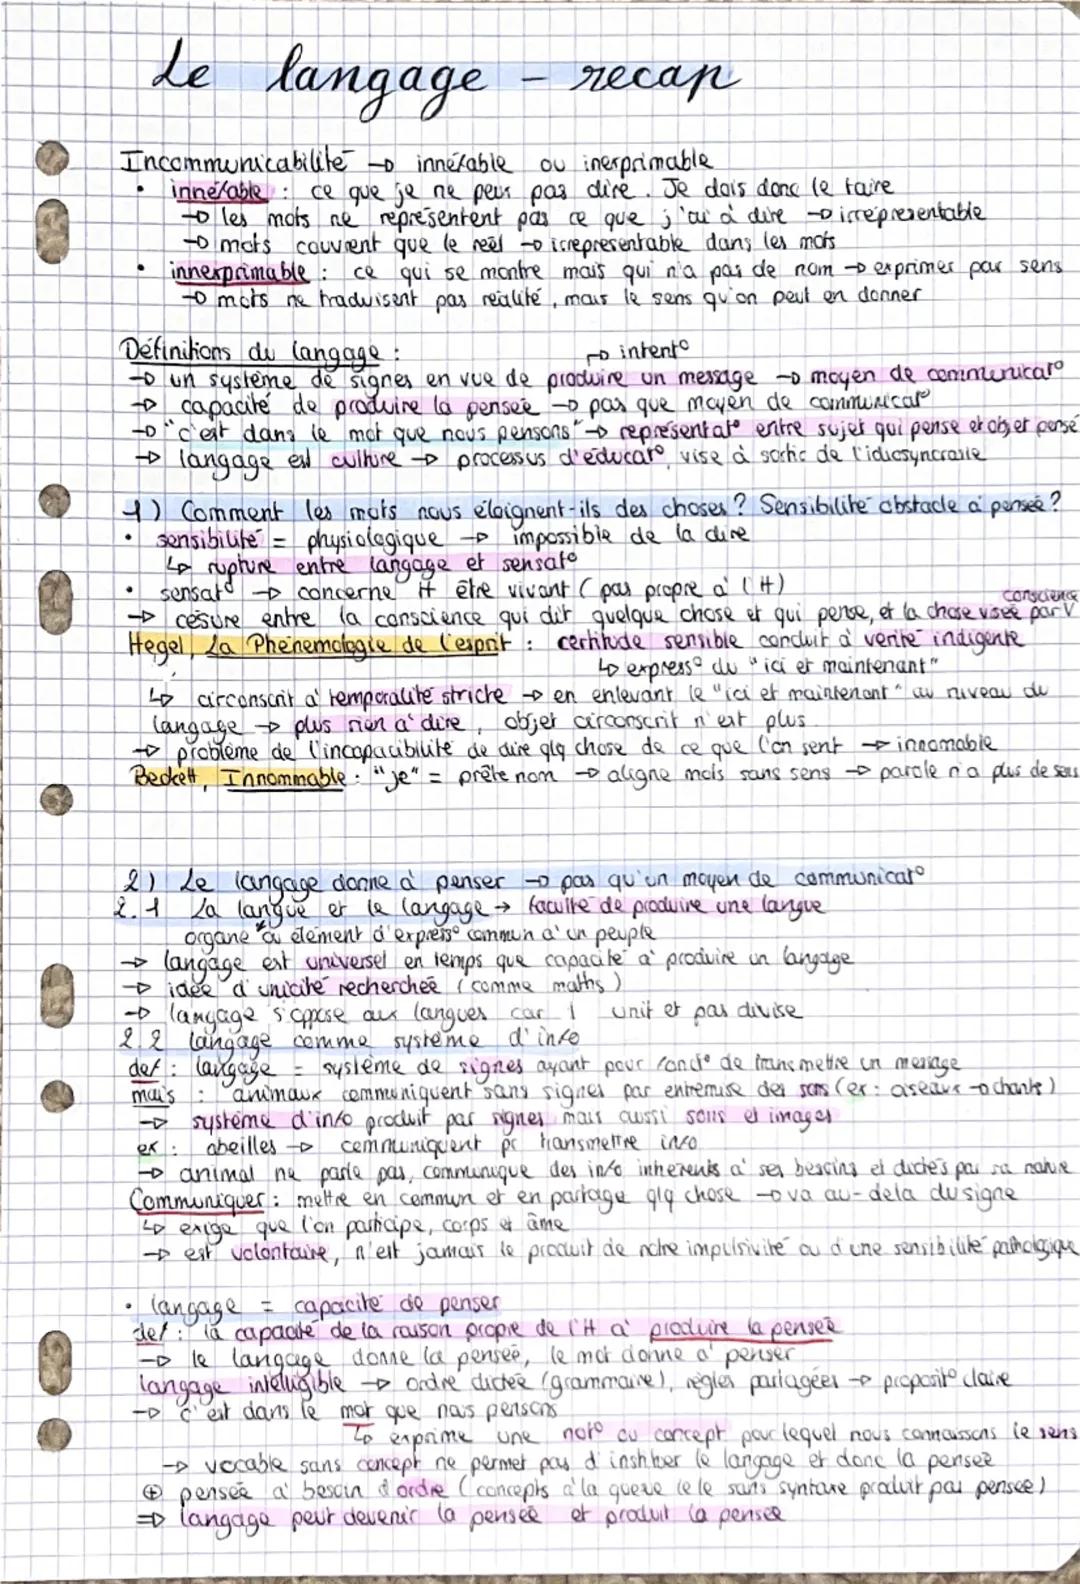 Le langage - recap
Incommunicabilité → innéfable ou inexprimable
• innéfable : ce que je ne peux pas dire. Je dois donc le taire
→ les mots ne représentent pas ce que j'ai à dire → irreprésentable
→ mots couvrent que le réel → irreprésentable dans les mots
• innexprimable : ce qui se montre mais qui n'a pas de nom → exprimer par sens
→ mots ne traduisent pas réalité, mais le sens qu'on peut en donner
Définitions du langage :
→ intent°
→ un système de signes en vue de produire un message → moyen de communicat°
→ capacité de produire la pensée → pas que moyen de communicat°
→ "c'est dans le mot que nous pensons" → représentat° entre sujet qui pense et objet pensé
→ langage est culture → processus d'éducat°, vise à sortir de l'idiosyncrasie
1) Comment les mots nous éloignent-ils des choses ? Sensibilité obstacle à pensée ?
• sensibilité = physiologique → impossible de la dire
↳ rupture entre langage et sensat°
• sensat° → concerne tt être vivant (pas propre à l'H)
conscience
→ césure entre la conscience qui dit quelque chose et qui pense, et la chose visée par V
Hegel, La Phénemologie de l'esprit : certitude sensible conduit à vérité indigente
↳ express° du "ici et maintenant"
↳ circonscrit à temporalité stricte → en enlevant le "ici et maintenant" au niveau du
langage → plus rien à dire, objet circonscrit n'est plus
→ problème de l'incapacibilité de dire qlq chose de ce que l'on sent → innomable
Beckett, Innommable : "je" = prête nom → aligne mots sans sens → parole n'a plus de sens
2) Le langage donne à penser → pas qu'un moyen de communicat°
2.1 La langue et le langage → faculté de produire une langue
organe ou élément d'express° commun à un peuple
→ langage est universel en temps que capacité à produire un langage
→ idée d'unicité recherchée (comme maths)
→ langage s'oppose aux langues car 1 unit et pas divise
2.2 langage comme système d'info
def : langage = système de signes ayant pour fonct° de transmettre un message
mais : animaux communiquent sans signes par entremise des sons (ex : oiseaux → chants)
→ système d'info produit par signes mais aussi sons et images
ex : abeilles → communiquent pr transmettre info
→ animal ne parle pas, communique des info inhérents à ses besoins et dictés par sa nature
Communiquer : mettre en commun et en partage qlq chose → va au-delà du signe
↳ exige que l'on participe, corps et âme
→ est volontaire, n'est jamais le produit de notre impulsivité ou d'une sensibilité pathologique
• langage = capacité de penser
def : la capacité de la raison propre de l'H à produire la pensée
→ le langage donne la pensée, le mot donne à penser
langage intelligible → ordre dictée (grammaire), règles partagées → proposit° claire
→ c'est dans le mot que nous pensons
↳ exprime une not° ou concept pour lequel nous connaissons le sens
→ vocable sans concept ne permet pas d'instituer le langage et donc la pensée
⊕ pensée a besoin d'ordre (concepts à la queue lele sans syntaxe produit pas pensée)
⇒ langage peut devenir la pensée et produit la pensée